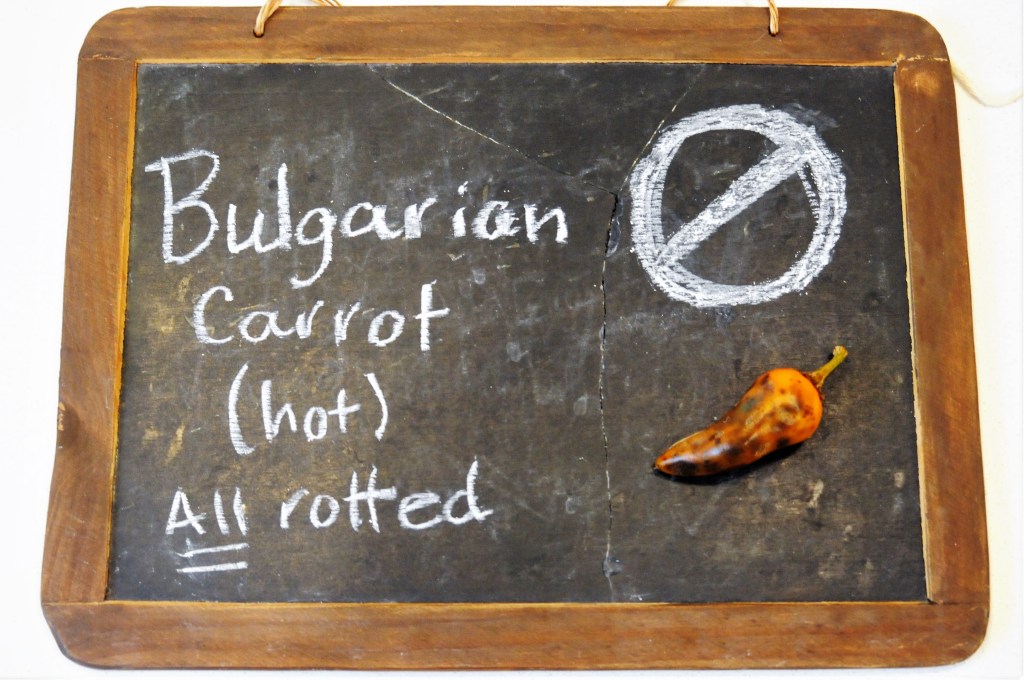 Bulgarian
Carrot
(hot)
All rotted